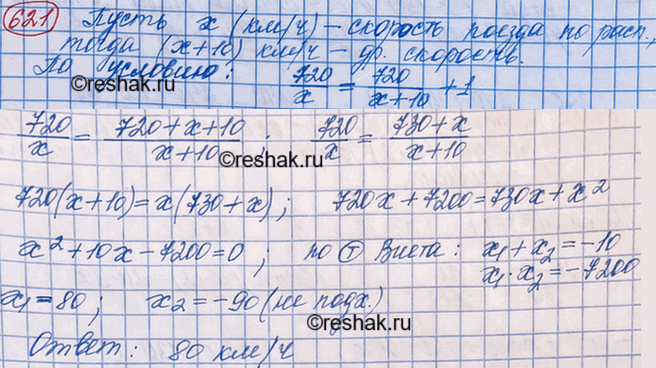 621 Пусть x (км/ч) – скорость поезда по расп.,
тогда (x+10) км/ч – др. скорость.
По условию: 720/x = 720/(x+10) + 1
©reshak.ru
720/x = (720+x+10)/(x+10) ; 720/x = (730+x)/(x+10)
©reshak.ru
720(x+10)=x(730+x); 720x+7200=730x+x²
x²+10x-7200=0; по Ⓣ Виета: x₁+x₂=-10
x₁·x₂=-7200
x₁=80; x₂=-90 (не подх.)
©reshak.ru
Ответ: 80 км/ч